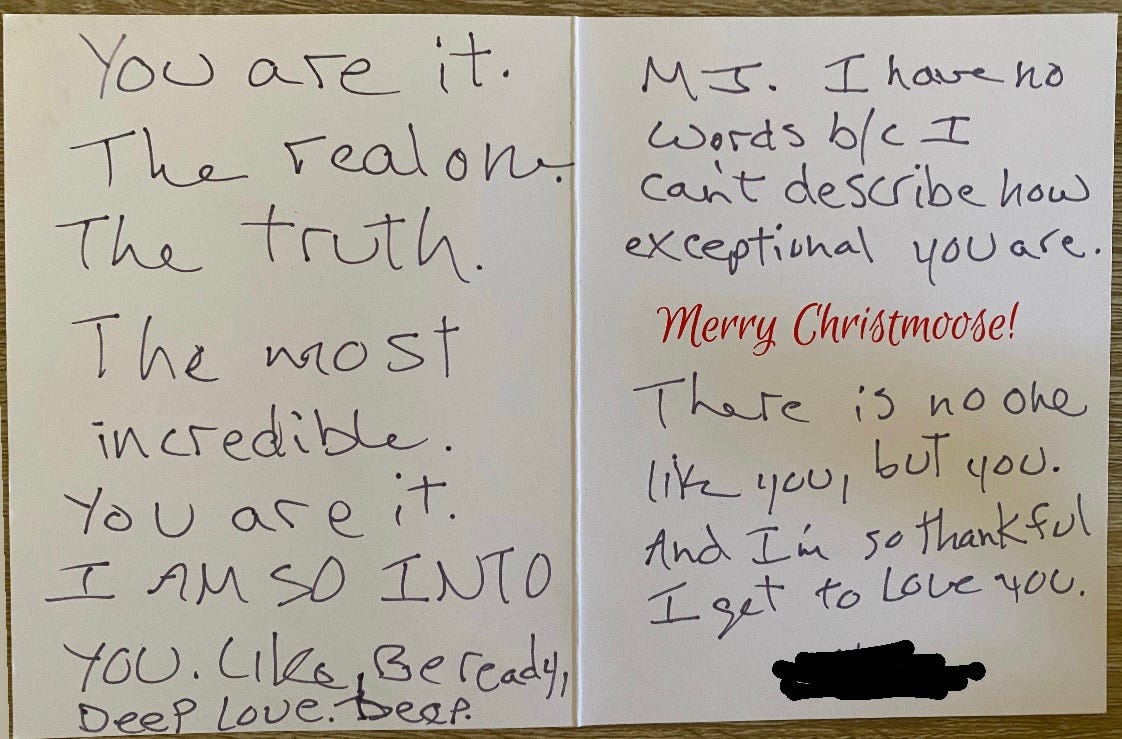 You are it.
The real one.
The truth.
The most
incredible.
You are it.
I AM SO INTO
YOU. Like, Be ready,
Deep Love. Deep.
MJ. I have no
words b/c I
can't describe how
exceptional you are.
Merry Christmoose!
There is no one
like you, but you.
And I'm so thankful
I get to Love you.